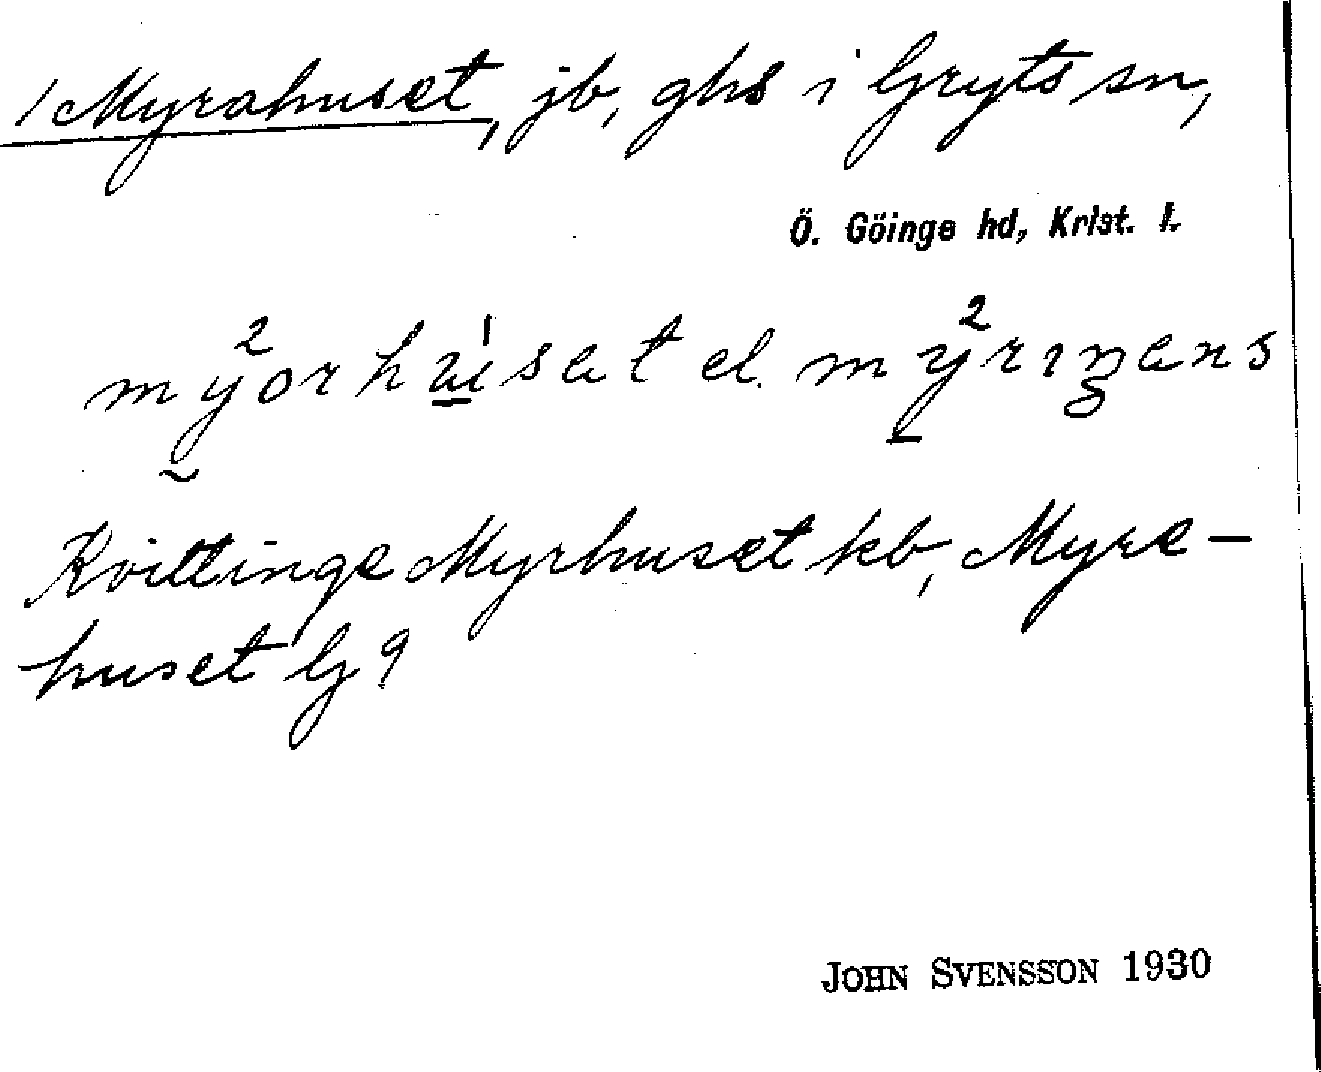 1 Myrahuset, jb, ghs i Gryts sn,
Ö. Göinge hd, Krist. l.
el.
Kvittinge Myrhuset kb, Myre-
huset G 9
JOHN SVENSSON 1930